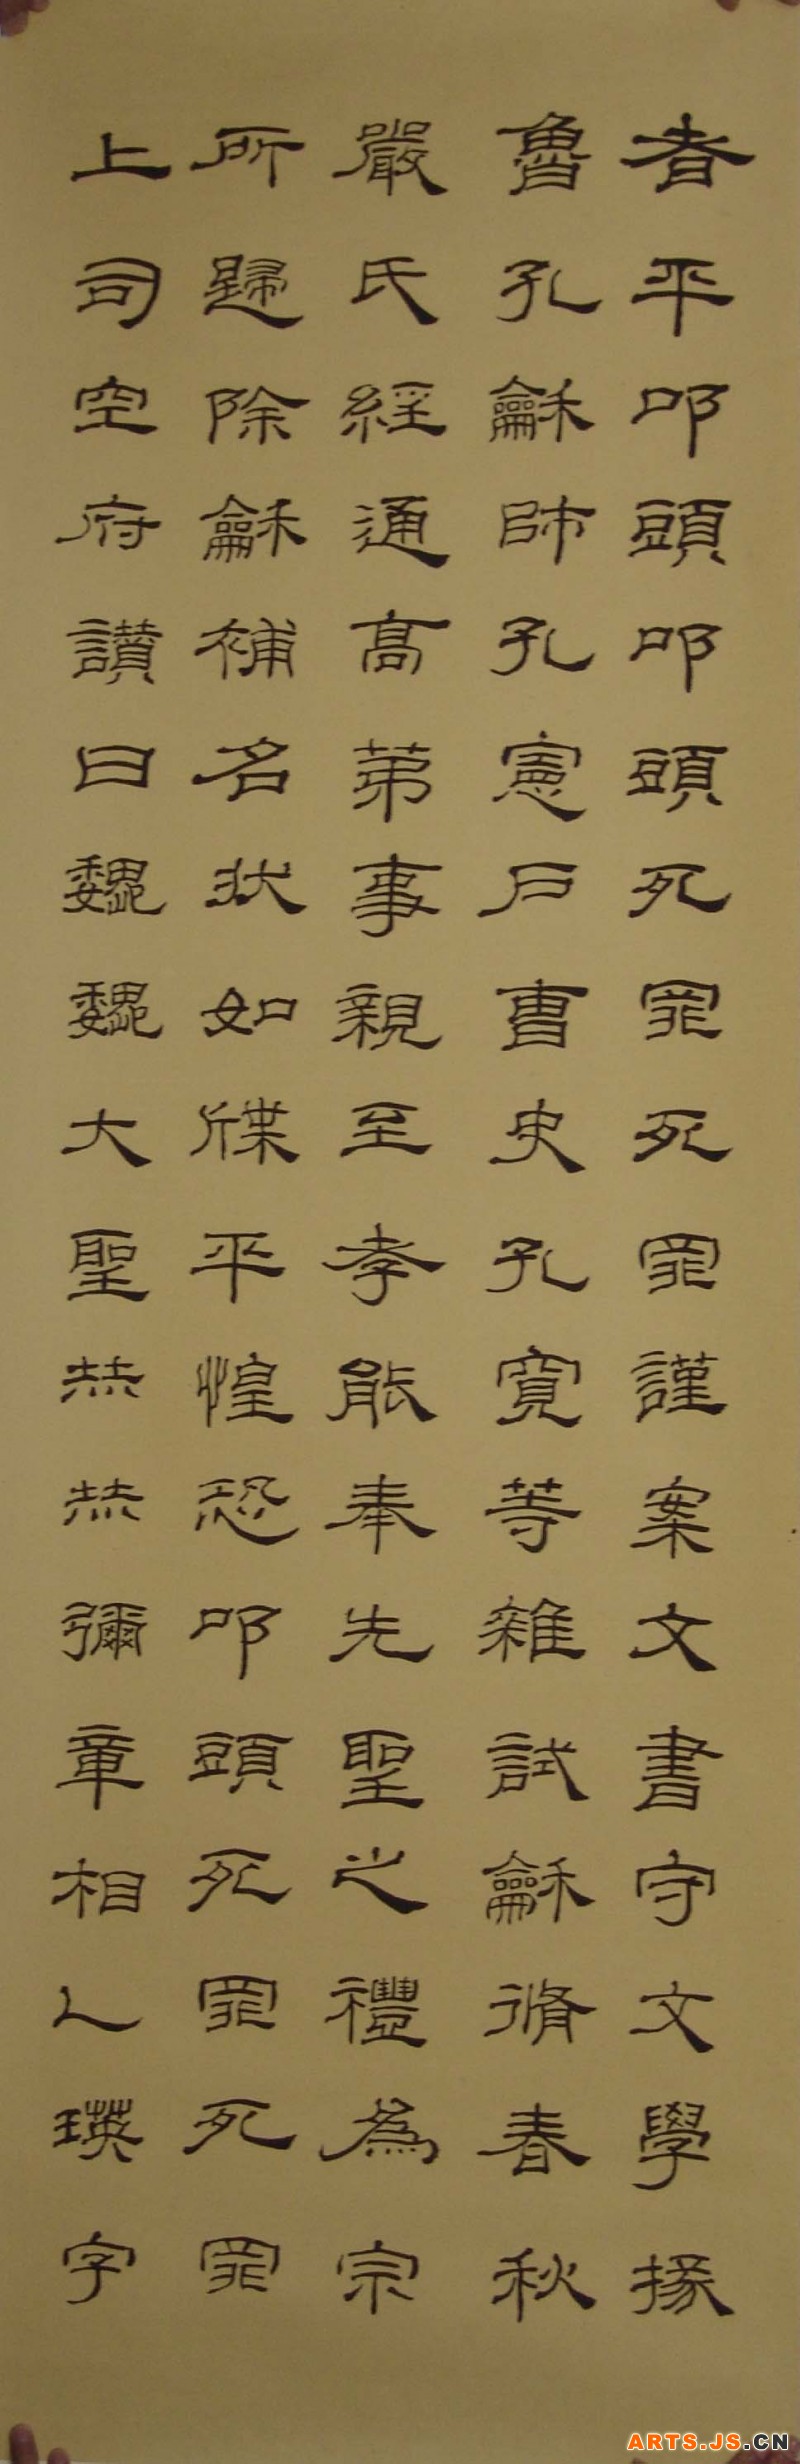 者平叩頭叩頭死罪死罪謹案文書守文學掾
魯孔龢師孔憲戶曹史孔寬等雜試龢脩春秋
嚴氏經通高第事親至孝能奉先聖之禮為宗
所歸除龢補名狀如牒平惶恐叩頭死罪死罪
上司空府讃曰巍巍大聖赫赫彌章相乙瑛字
ARTS.JS.CN